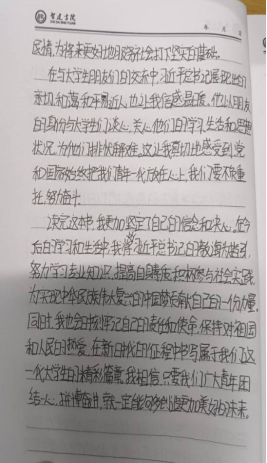 智建书院
年 月 日
民情,为将来更好地服务社会打下坚实的基础。
在与大学生朋友们的交流中,习近平总书记展现出的
亲切和蔼和平易近人也让我倍感温暖。他以朋友
的身份与大学生们谈心,关心他们的学习、生活和思想
状况,为他们排忧解难。这让我真切地感受到,党
和国家始终把我们青年一代放在心上,我们要不负重
托,努力奋斗。
读完这本书,我更加坚定了自己的信念和决心。在今
后的学习和生活中,我将以习近平总书记的教诲为指引,
努力学习专业知识,提高自身素质,积极参与社会实践,
为实现中华民族伟大复兴的中国梦贡献自己的一份力量。
同时,我也会时刻牢记自己的责任和使命,保持对祖国
和人民的热爱,在新时代的征程中书写属于我们这
一代大学生的精彩篇章。我相信,只要我们广大青年团
结一心,拼搏奋进,就一定能够创造更加美好的未来。